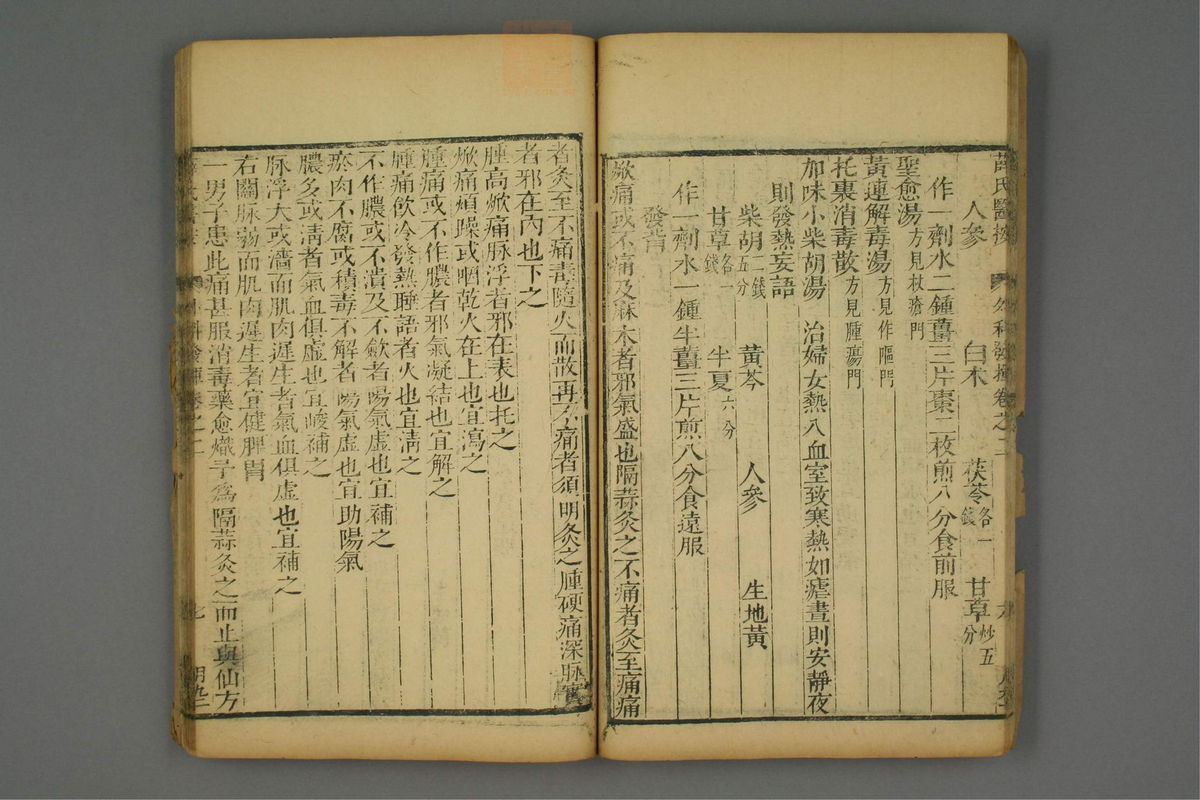 薛氏醫按 外科發揮卷之二 六
人參 白朮 茯苓各一錢 甘草炒五分
作一劑水二鍾薑三片棗二枚煎八分食前服
聖愈湯方見杖瘡門
黃連解毒湯方見作嘔門
托裏消毒散方見腫瘍門
加味小柴胡湯 治婦女熱入血室致寒熱如瘧晝則安靜夜
則發熱妄語
柴胡二錢五分 黃芩 人參 生地黃
甘草各一錢 半夏六分
作一劑水一鍾半薑三片煎八分食遠服
發背
焮痛或不痛及麻木者邪氣盛也隔蒜灸之不痛者灸至痛痛
者灸至不痛毒隨火而散再不痛者須明灸之腫硬痛深脉實
者邪在內也下之
腫高焮痛脉浮者邪在表也托之
焮痛煩躁或咽乾火在上也宜瀉之
腫痛或不作膿者邪氣凝結也宜解之
腫痛飲冷發熱睡語者火也宜清之
不作膿或不潰及不斂者陽氣虛也宜補之
瘀肉不腐或積毒不解者陽氣虛也宜助陽氣
膿多或清者氣血俱虛也宜峻補之
脉浮大或濇而肌肉遲生者氣血俱虛也宜補之
右關脉弱而肌肉遲生者宜健脾胃
一男子患此痛甚服消毒藥愈熾予爲隔蒜灸之而止與仙方
七